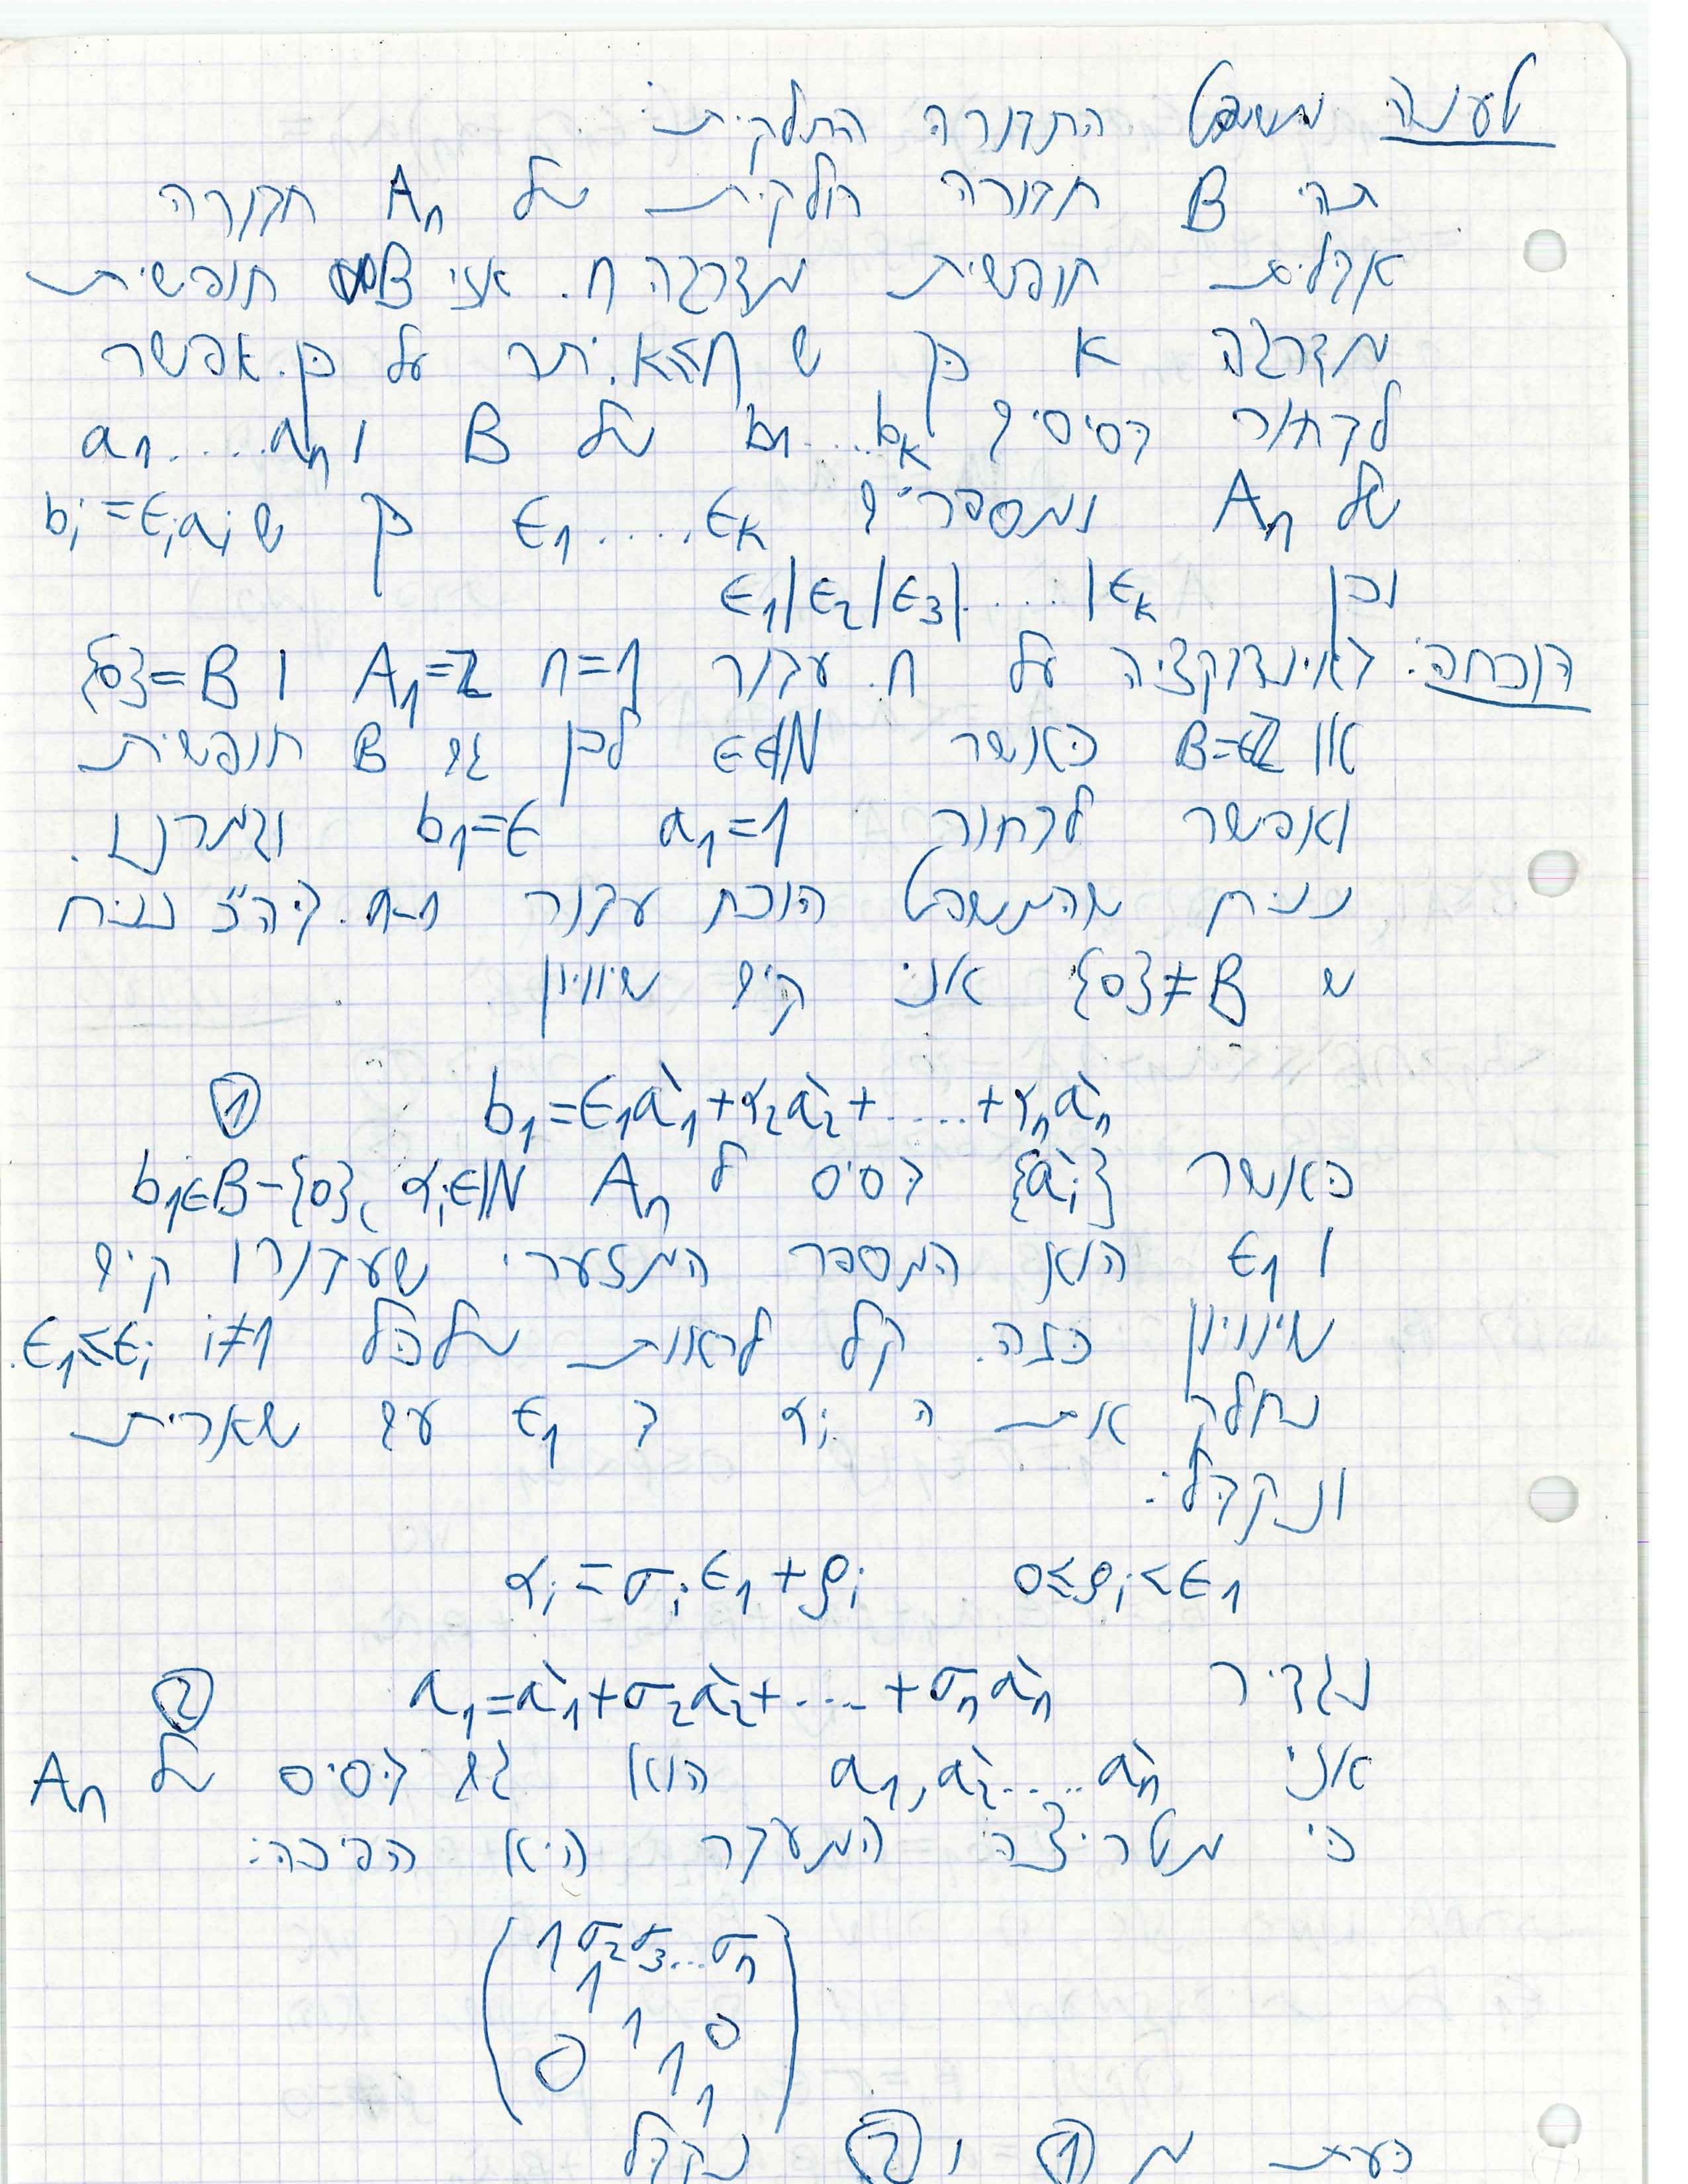 טענה משפט החבורה החלקית:
תהי B חבורה חלקית של Aₙ חבורה
אבלית חופשית מדרגה n. אזי B חופשית
מדרגה k כך ש k≤n. יתר על כן. אפשר
לבחור בסיסים b₁....bₖ של B ו a₁.....aₙ
של Aₙ ומספרים ϵ₁.....ϵₖ כך ש bᵢ=ϵᵢaᵢ
וכן ϵ₁|ϵ₂|ϵ₃|.....|ϵₖ
הוכחה: באינדוקציה על n. עבור n=1 A₁=ℤ ו B={0}
או B=ϵℤ כאשר ϵ∈ℕ לכן גם B חופשית
ואפשר לבחור a₁=1 b₁=ϵ וגמרנו.
נניח שהמשפט הוכח עבור n-1. בה"כ נניח
ש B≠{0} אזי קים שוויון
b₁=ϵ₁a`₁+α₂a`₂+.....+αₙa`ₙ ①
כאשר {a`ᵢ} בסיס ל Aₙ αᵢ∈ℕ, b₁∈B-{0}
ו ϵ₁ הוא המספר המזערי שעבורו קים
שיוויון כזה. קל לראות שלכל i≠1 ϵ₁≤ϵᵢ.
נחלק את ה αᵢ ב ϵ₁ עם שארית
ונקבל:
αᵢ=σᵢϵ₁+ρᵢ 0≤ρᵢ<ϵ₁
נגדיר a₁=a`₁+σ₂a`₂+....+σₙa`ₙ ②
אזי a₁,a`₂.....a`ₙ הוא גם בסיס של Aₙ
כי מטריצה המעבר היא הפיכה:
1 σ₂ σ₃...σₙ
1
1 0
0 1
1
כעת מ ① ו ② נקבל